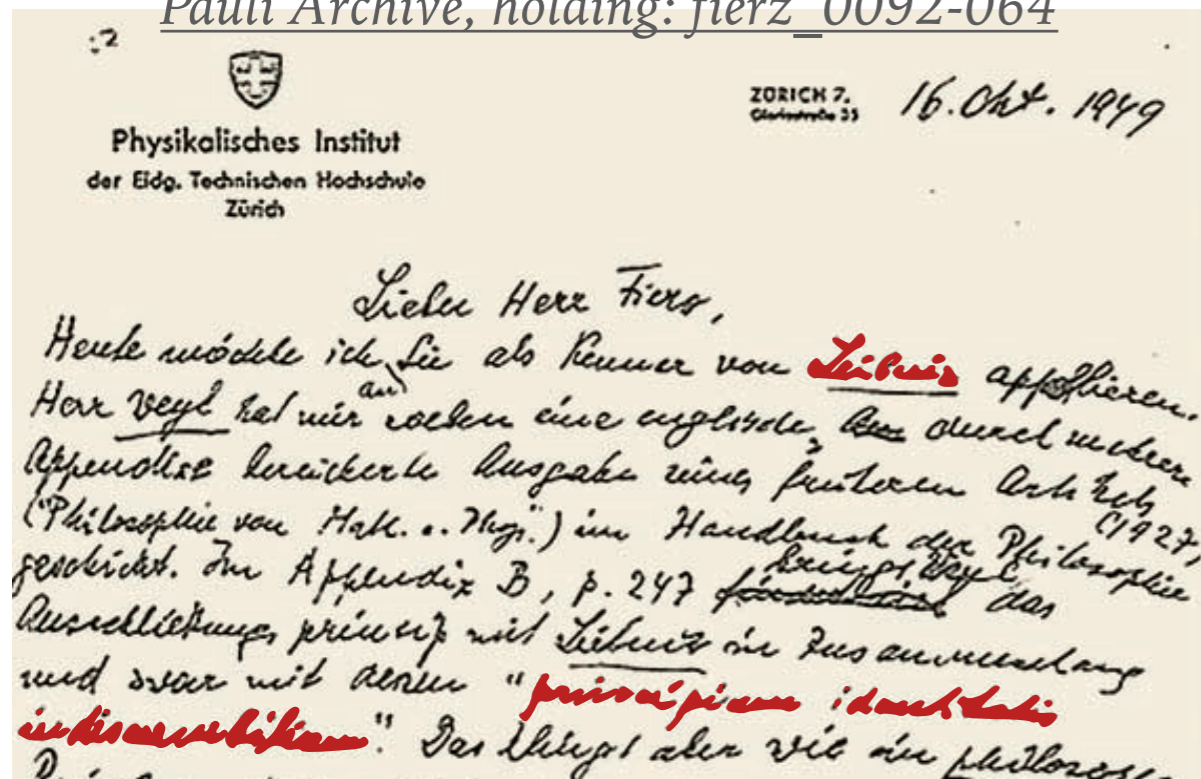 Pauli Archive, holding: fierz_0092-064
:2
Physikalisches Institut
der Eidg. Technischen Hochschule
Zürich
ZÜRICH 7,
Gloriastraße 35
16. Okt. 1949
Lieber Herr Fierz,
Heute möchte ich an Sie als Kenner von Leibniz appellieren.
Herr Weyl hat mir soeben eine englische, durch mehrere
Appendise bereicherte Ausgabe eines früheren Artikels
("Philosophie von Math. u. Phys.") im Handbuch der Philosophie (1927)
geschickt. Im Appendix B, p. 247 bringt Weyl das
Ausschließungsprinzip mit Leibniz in Zusammenhang
und zwar mit dessen "principium identitatis
indiscernibilium". Das klingt aber wie ein